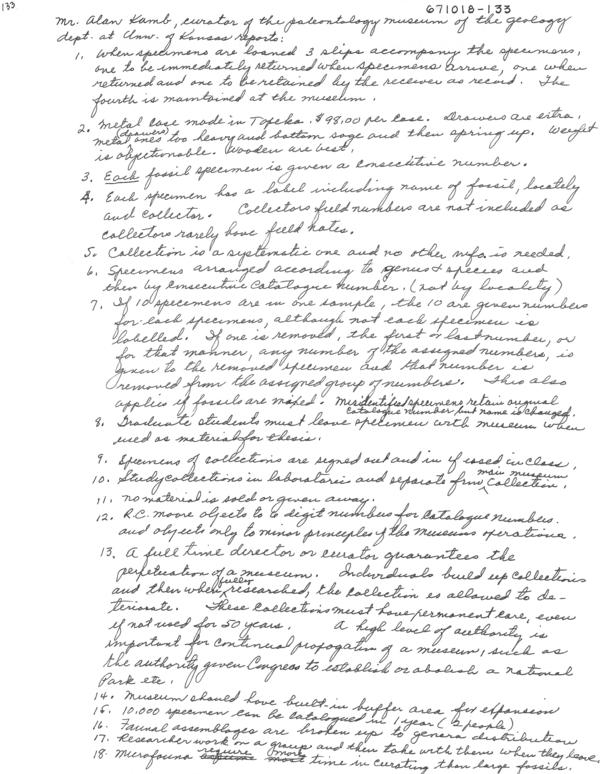 133
671018-133
Mr. Alan Kamb, curator of the paleontology museum of the geology
dept. at Univ. of Kansas reports:
1. When specimens are loaned 3 slips accompany the specimens,
one to be immediately returned when specimens arrive, one when
returned and one to be retained by the receiver as record. The
fourth is maintained at the museum.
2. Metal case made in Topeka. $98.00 per case. Drawers are extra,
metal ones (drawers) too heavy and bottom sage and then spring up. Weight
is objectionable. Wooden are best.
3. Each fossil specimen is given a consecutive number.
4. Each specimen has a label including name of fossil, locately
and collector. Collectors field numbers are not included as
collectors rarely have field notes.
5. Collection is a systematic one and no other info. is needed.
6. Specimens arranged according to genus & species and
then by consecutive catalogue number. (not by locality)
7. If 10 specimens are in one sample, the 10 are given numbers
for each specimens, although not each specimen is
labelled. If one is removed, the first or last number, or
for that manner, any number of the assigned numbers, is
given to the removed specimen and that number is
removed from the assigned group of numbers. This also
applies if fossils are mixed. Misidentified specimens retain original
catalogue number but name is changed.
8. Graduate students must leave specimen with museum when
used as material for thesis.
9. Specimens of collections are signed out and in if used in class.
10. Study collections in laboratories and separate from main museum collection.
11. No material is sold or given away.
12. R.C. Moore objects to 6 digit numbers for catalogue numbers.
and objects only to minor principles of the museums operations.
13. A full time director or curator guarantees the
perpetuation of a museum. Individuals build up collections
and then when fully researched, the collection is allowed to de-
teriorate. These collections must have permanent care, even
if not used for 50 years. A high level of authority is
important for continual propogation of a museum, such as
the authority given Congress to establish or abolish a national
Park etc.
14. Museum should have built-in buffer area for expansion
15. 10.000 specimen can be catalogued in 1 year (2 people)
16. Faunal assemblages are broken up to genera distribution
17. Researcher work on a group and then take with them when they leave.
18. Microfauna require more time in curating than large fossils.